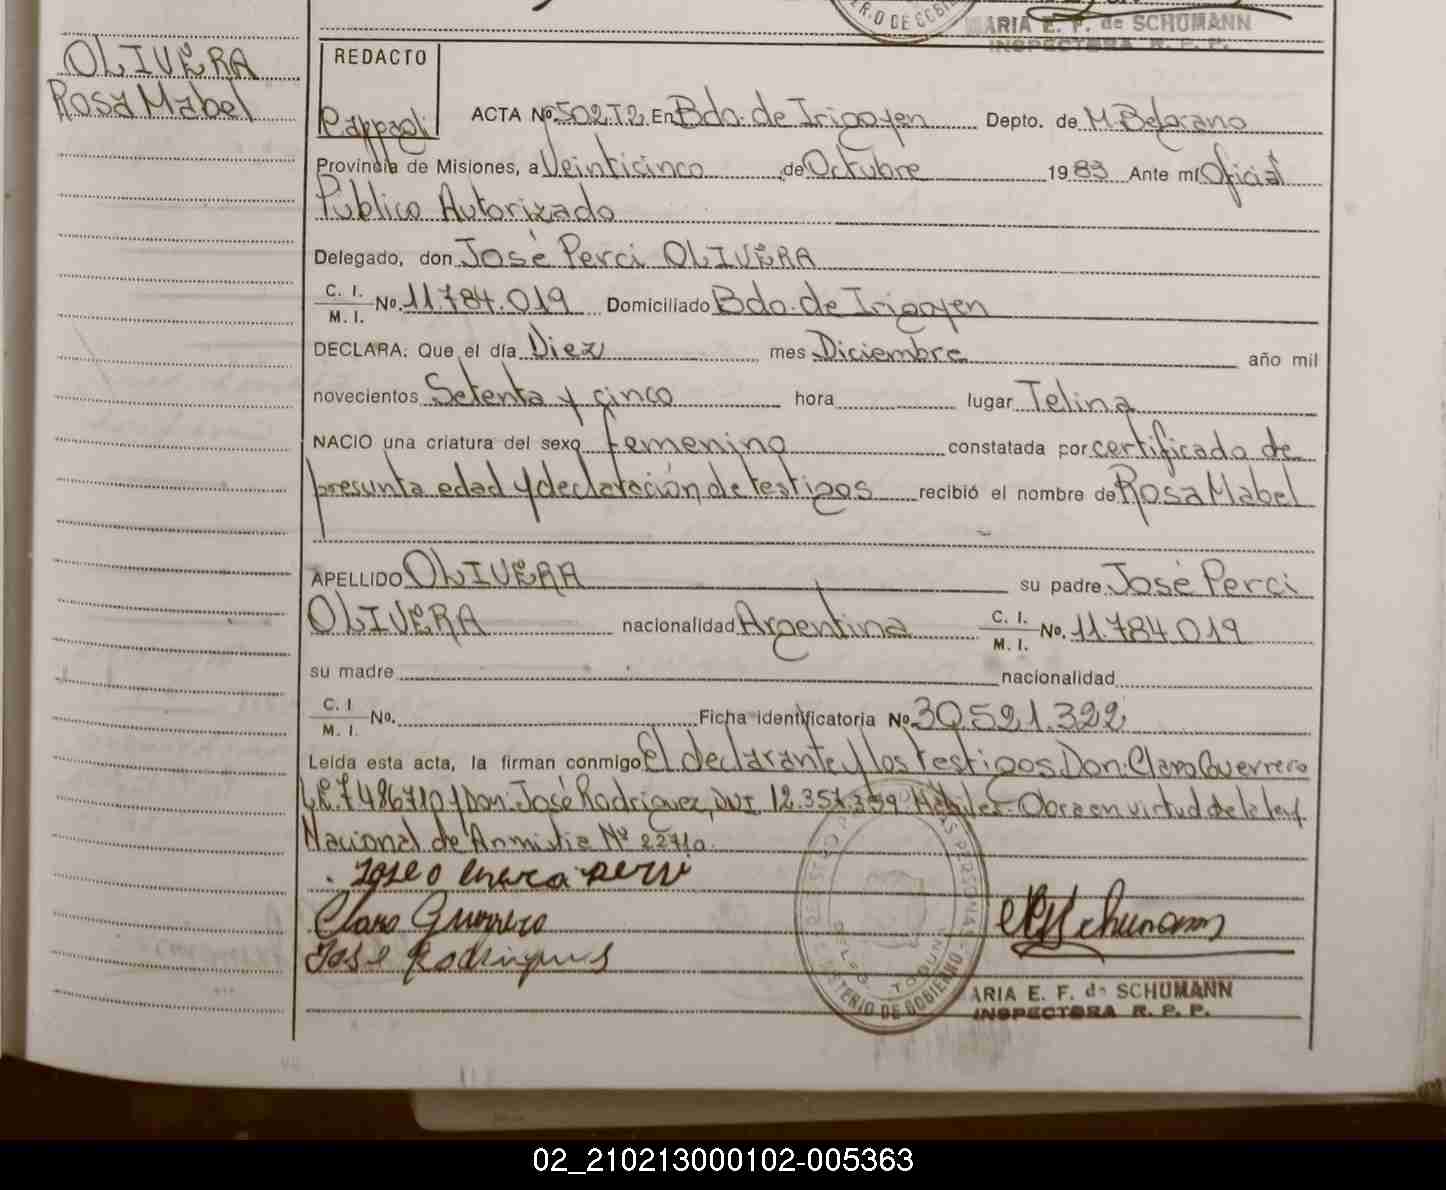 R.O DE GOBI
MARIA E. F. de SCHUMANN
INSPECTORA R. P. P.
OLIVERA
Rosa Mabel
REDACTO
ACTA Nº 502.T2. En Bdo. de Irigoyen Depto. de M. Belgrano
Provincia de Misiones, a Veinticinco de Octubre 1983 Ante mí Oficial
Público Autorizado
Delegado, don José Perci OLIVERA
C. I.
M. I. No. 11.784.019 Domiciliado Bdo. de Irigoyen
DECLARA: Que el día Diez mes Diciembre año mil
novecientos Setenta y cinco hora lugar Telina
NACIO una criatura del sexo femenino constatada por certificado de
presunta edad y declaración de testigos recibió el nombre de Rosa Mabel
APELLIDO OLIVERA su padre José Perci
OLIVERA nacionalidad Argentina C. I. M. I. No. 11.784.019
su madre nacionalidad
C. I M. I. No. Ficha identificatoria Nº 30.521.322
Leída esta acta, la firman conmigo El declarante y los testigos Don: Claro Guerrero
7486710 y Don. José Rodriguez, 12.357.359 Hábiles- Obra en virtud de la ley
Nacional de Anmistia Nº
Claro Guerrero
José Rodrigues
Schumann
MARIA E. F. de SCHUMANN
INSPECTORA R. P. P.
02_210213000102-005363